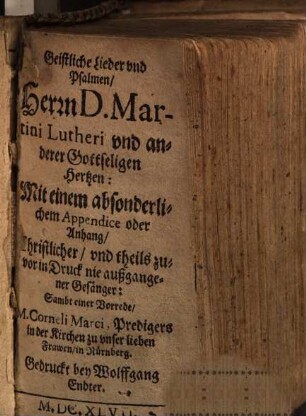 Geistliche Lieder vnd
Psalmen/
Herrn D. Mar-
tini Lutheri vnd an-
derer Gottseligen
Hertzen:
Mit einem absonderli-
chem Appendice oder
Anhang/
Christlicher/ vnd theils zu-
vor in Druck nie außgange-
ner Gesänger:
Sambt einer Vorrede/
M. Corneli Marci, Predigers
in der Kirchen zu vnser lieben
Frawen/ in Nürnberg.
Gedruckt bey Wolffgang
Endter.